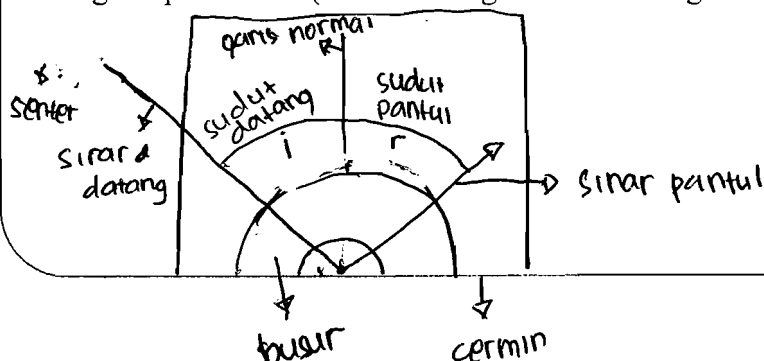 garis normal
senter
sinar
datang
sudut
datang
i
sudut
pantul
r
sinar pantul
busur
cermin